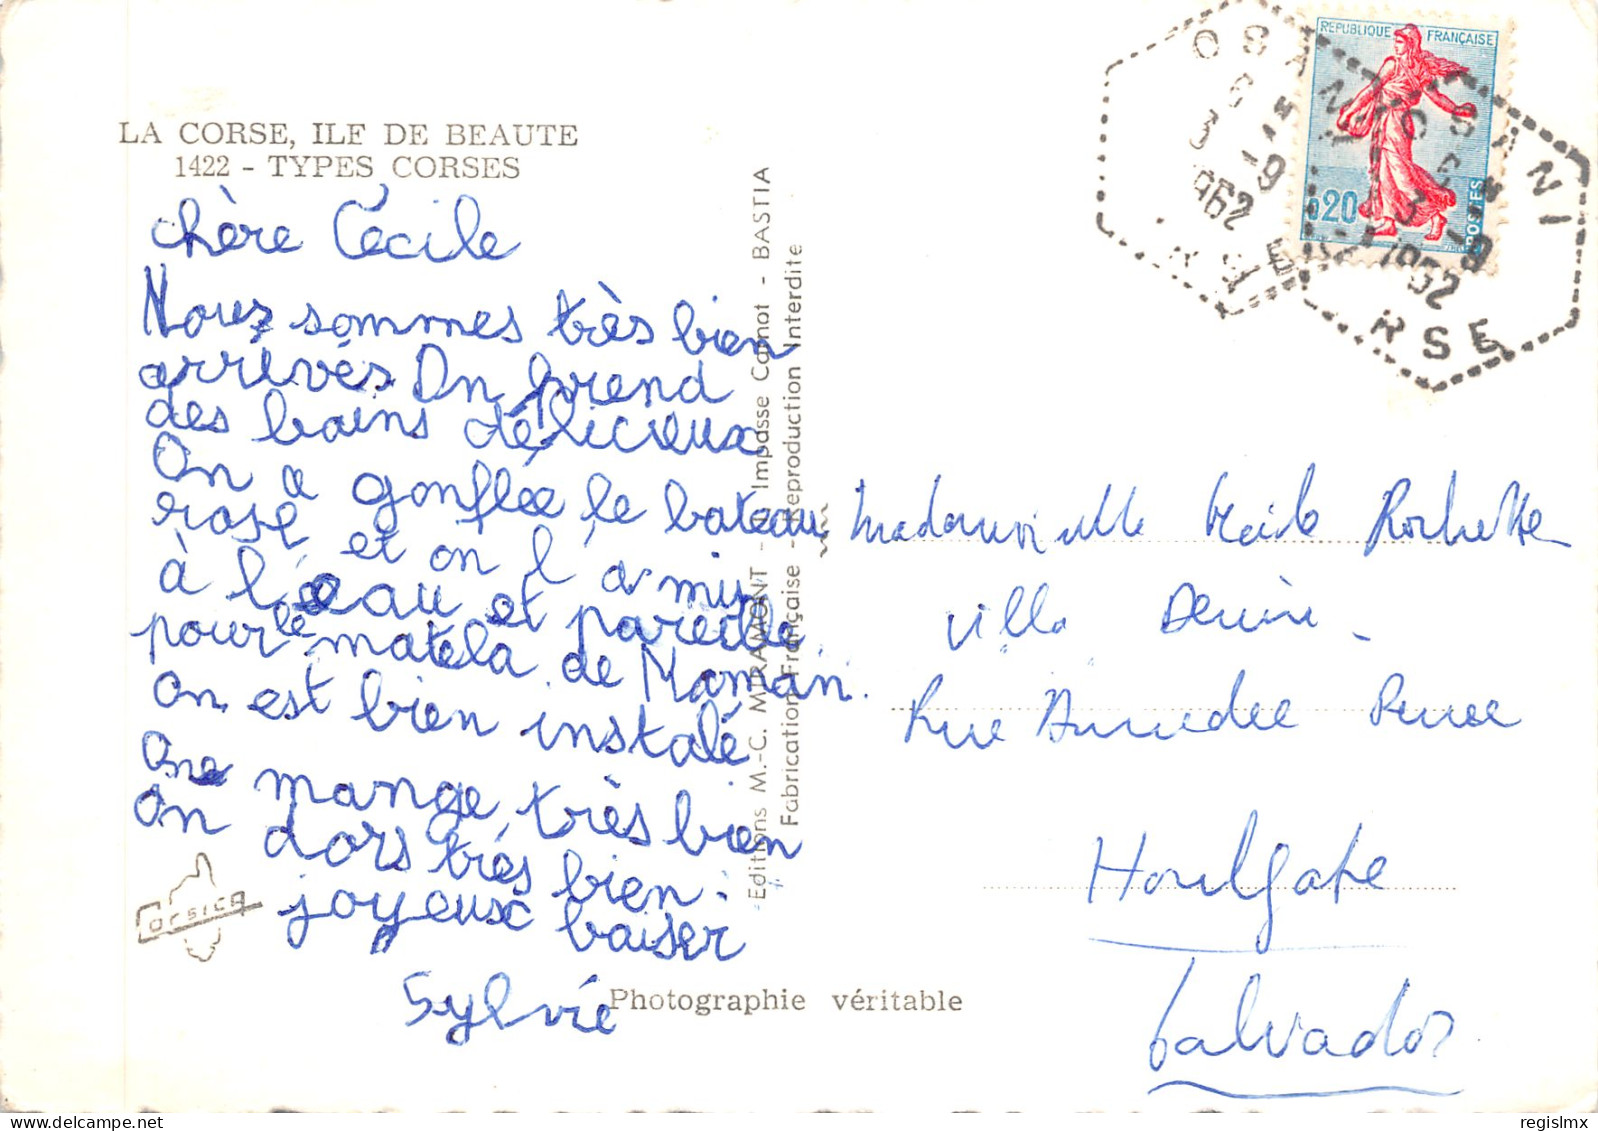 LA CORSE, ILE DE BEAUTE
1422 - TYPES CORSES
chère Cécile
Nous sommes très bien
arrivés On prend
des bains délicieux
On a gonflée le bateau
rose et on l a mis
à l'eau et pareille
pour le matela de Maman.
On est bien instalé
One mange très bien
On dors très bien.
joyeux baiser
Sylvie
corsica
Photographie véritable
Editions M.-C. MIRAMONT - Impasse Carnot - BASTIA
Fabrication Française - Reproduction Interdite
REPUBLIQUE FRANÇAISE
0,20
POSTES
OSANI
3 - 9
1962
RSE
OSANI
3 - 9
1962
RSE
Mademoiselle Cécile Rochette
Villa
Rue
Houlgate
Calvados
regislmx